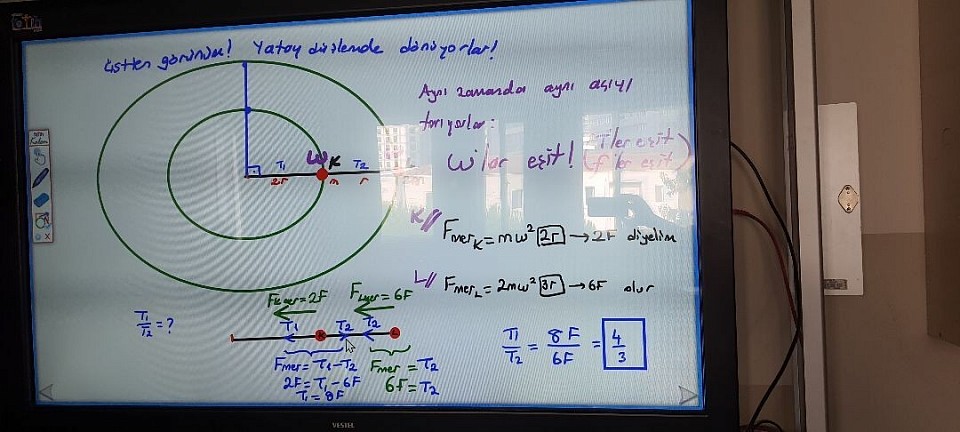 üstten görünüm! Yatay düzlemde dönüyorlar!
Aynı zamanda aynı açıyı
tarıyorlar:
W'lar eşit! (T'ler eşit
f'ler eşit)
T₁ W K T₂
2r m r
K// F_merK = mω² 2r → 2F diyelim
L// F_merL = 2mω² 3r → 6F olur
F_Kmer = 2F F_Lmer = 6F
T₁/T₂ = ?
T₁ T₂ T₂
F_mer = T₁ - T₂ F_mer = T₂
2F = T₁ - 6F 6F = T₂
T₁ = 8F
T₁/T₂ = 8F/6F = 4/3
VESTEL